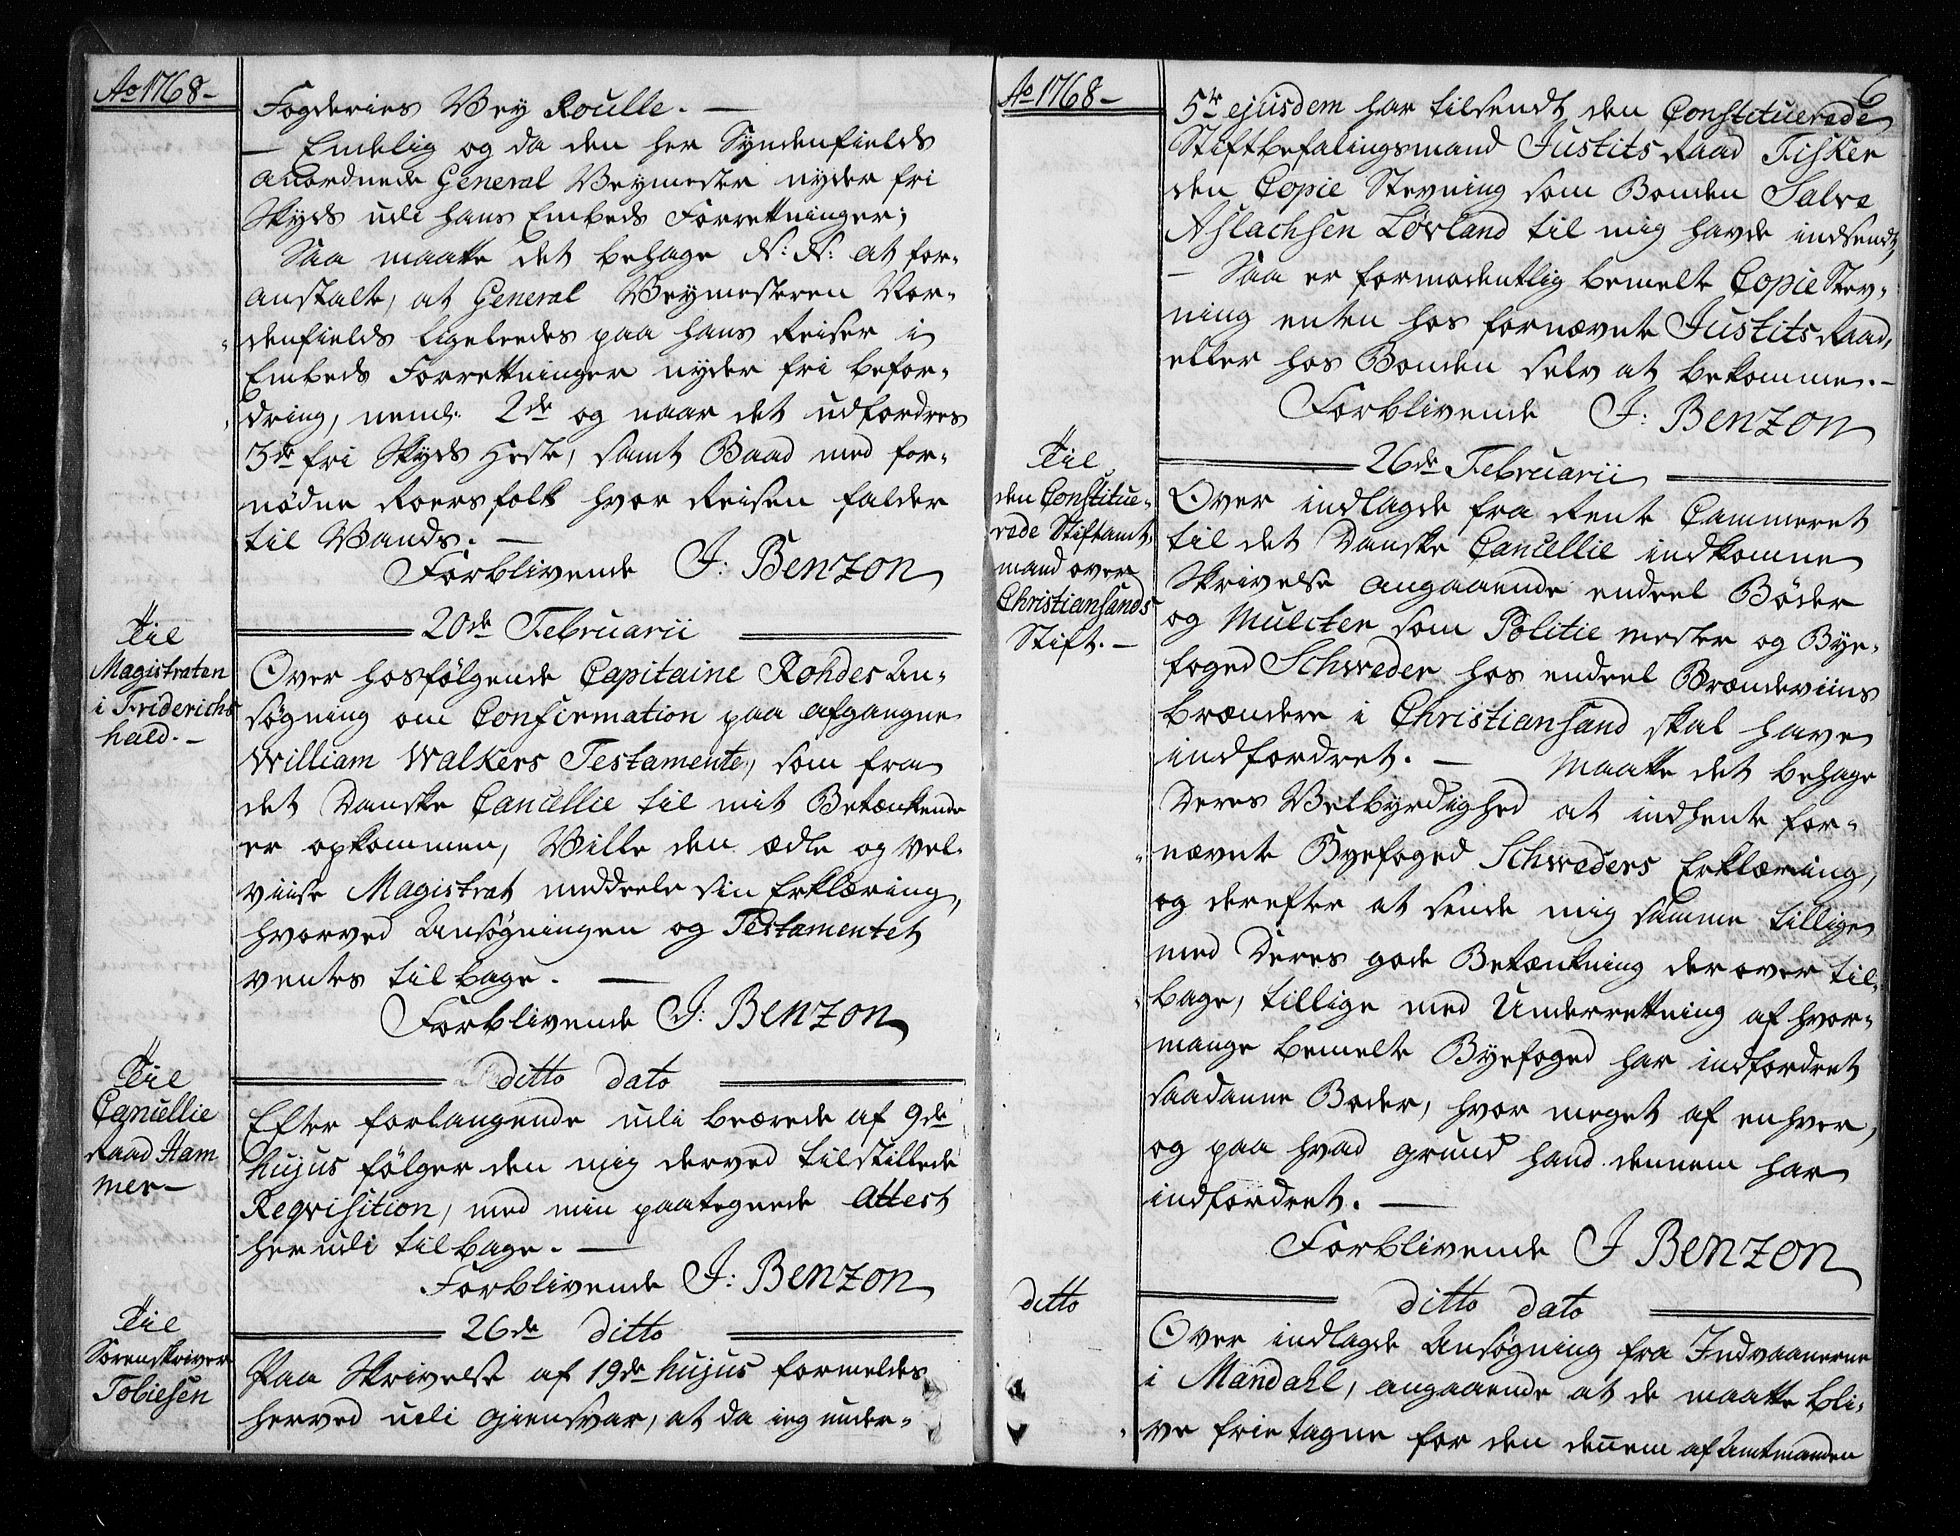 Ao 1768-
Fogderies Vey Roulle. -
- Endelig og da den her Syndenfields
anordnede General Veymester nyder fri
Skyds udi hans Embeds Forrettninger;
Saa maatte det behage N: N: at for-
anstalte, at General Veymesteren Nor-
denfields ligeledes paa hans Reiser i
Embeds Forrettninger nyder fri befor-
dring, neml: 2de og naar det udfordres
3de fri Skyds Heste, samt Baad med for-
nødne Roersfolk hvor Reisen falder
til Vands. -
Forblivende J: Benzon
Til
Magistraten
i Friderichs
hald. -
20de Februarii
Over hosfølgende Capitaine Rohdes An-
søgning om Confirmation paa afgangne
William Walkers Testamente, som fra
det Danske Cancellie til mit Betænkende
er opkommen, Ville den ædle og vel-
viise Magistrat meddeele sin Erklæring,
hvorved Ansøgningen og Testamentet
ventes tilbage. -
Forblivende J: Benzon
Til
Cancellie
Raad Ham
mer-
ditto dato
Efter forlangende udi beærede af 9de
hujus følger den mig derved tilstillede
Reqvisition, med min paategnede Attest
her udi tilbage. -
Forblivende J: Benzon
Til
Sorenskriver
Tobiesen
26de ditto
Paa Skrivelse af 19de hujus formeldes
herved udi giensvar, at da ieg under-
Ao 1768-
6
5te ejusdem har tilsendt den Constituerede
Stiftbefalingsmand Justits Raad Fisker
den Copie Stevning som Bonden Salve
Aslachsen Løvland til mig havde indsendt,
- Saa er formodentlig bemelte Copie Stev-
ning enten hos fornævnte Justits Raad,
eller hos Bonden selv at bekomme. -
Forblivende J: Benzon
Til
den Constitue-
rede Stiftamt-
mand over
Christiansands
Stift. -
26de Februarii
Over indlagde fra Rente Cammeret
til det Danske Cancellie indkomne
Skrivelse angaaende endeel Bøder
og Mulcter som Politie mester og Bye-
foged Schweder hos endeel Brændeviins
brændere i Christiansand skal have
indfordret. - Maatte det behage
Deres Velbyrdighed at indhente for-
nævnte Byefoged Schweders Erklæring,
og derefter at sende mig samme tillige
med Deres gode Betænkning derover til-
bage, tillige med Underrettning af hvor-
mange bemelte Byefoged har indfordret
saadanne Bøder, hvor meget af enhver,
og paa hvad grund hand dennem har
indfordret. -
Forblivende J Benzon
ditto
ditto dato
Over indlagde Ansøgning fra Indvaanerne
i Mandahl, angaaende at de maatte bli-
ve frietagne for den dennem af Amtmanden